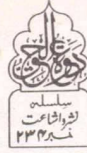 دعوة الحق
سلسلہ
نشر و اشاعت
نمبر ۲۳۴